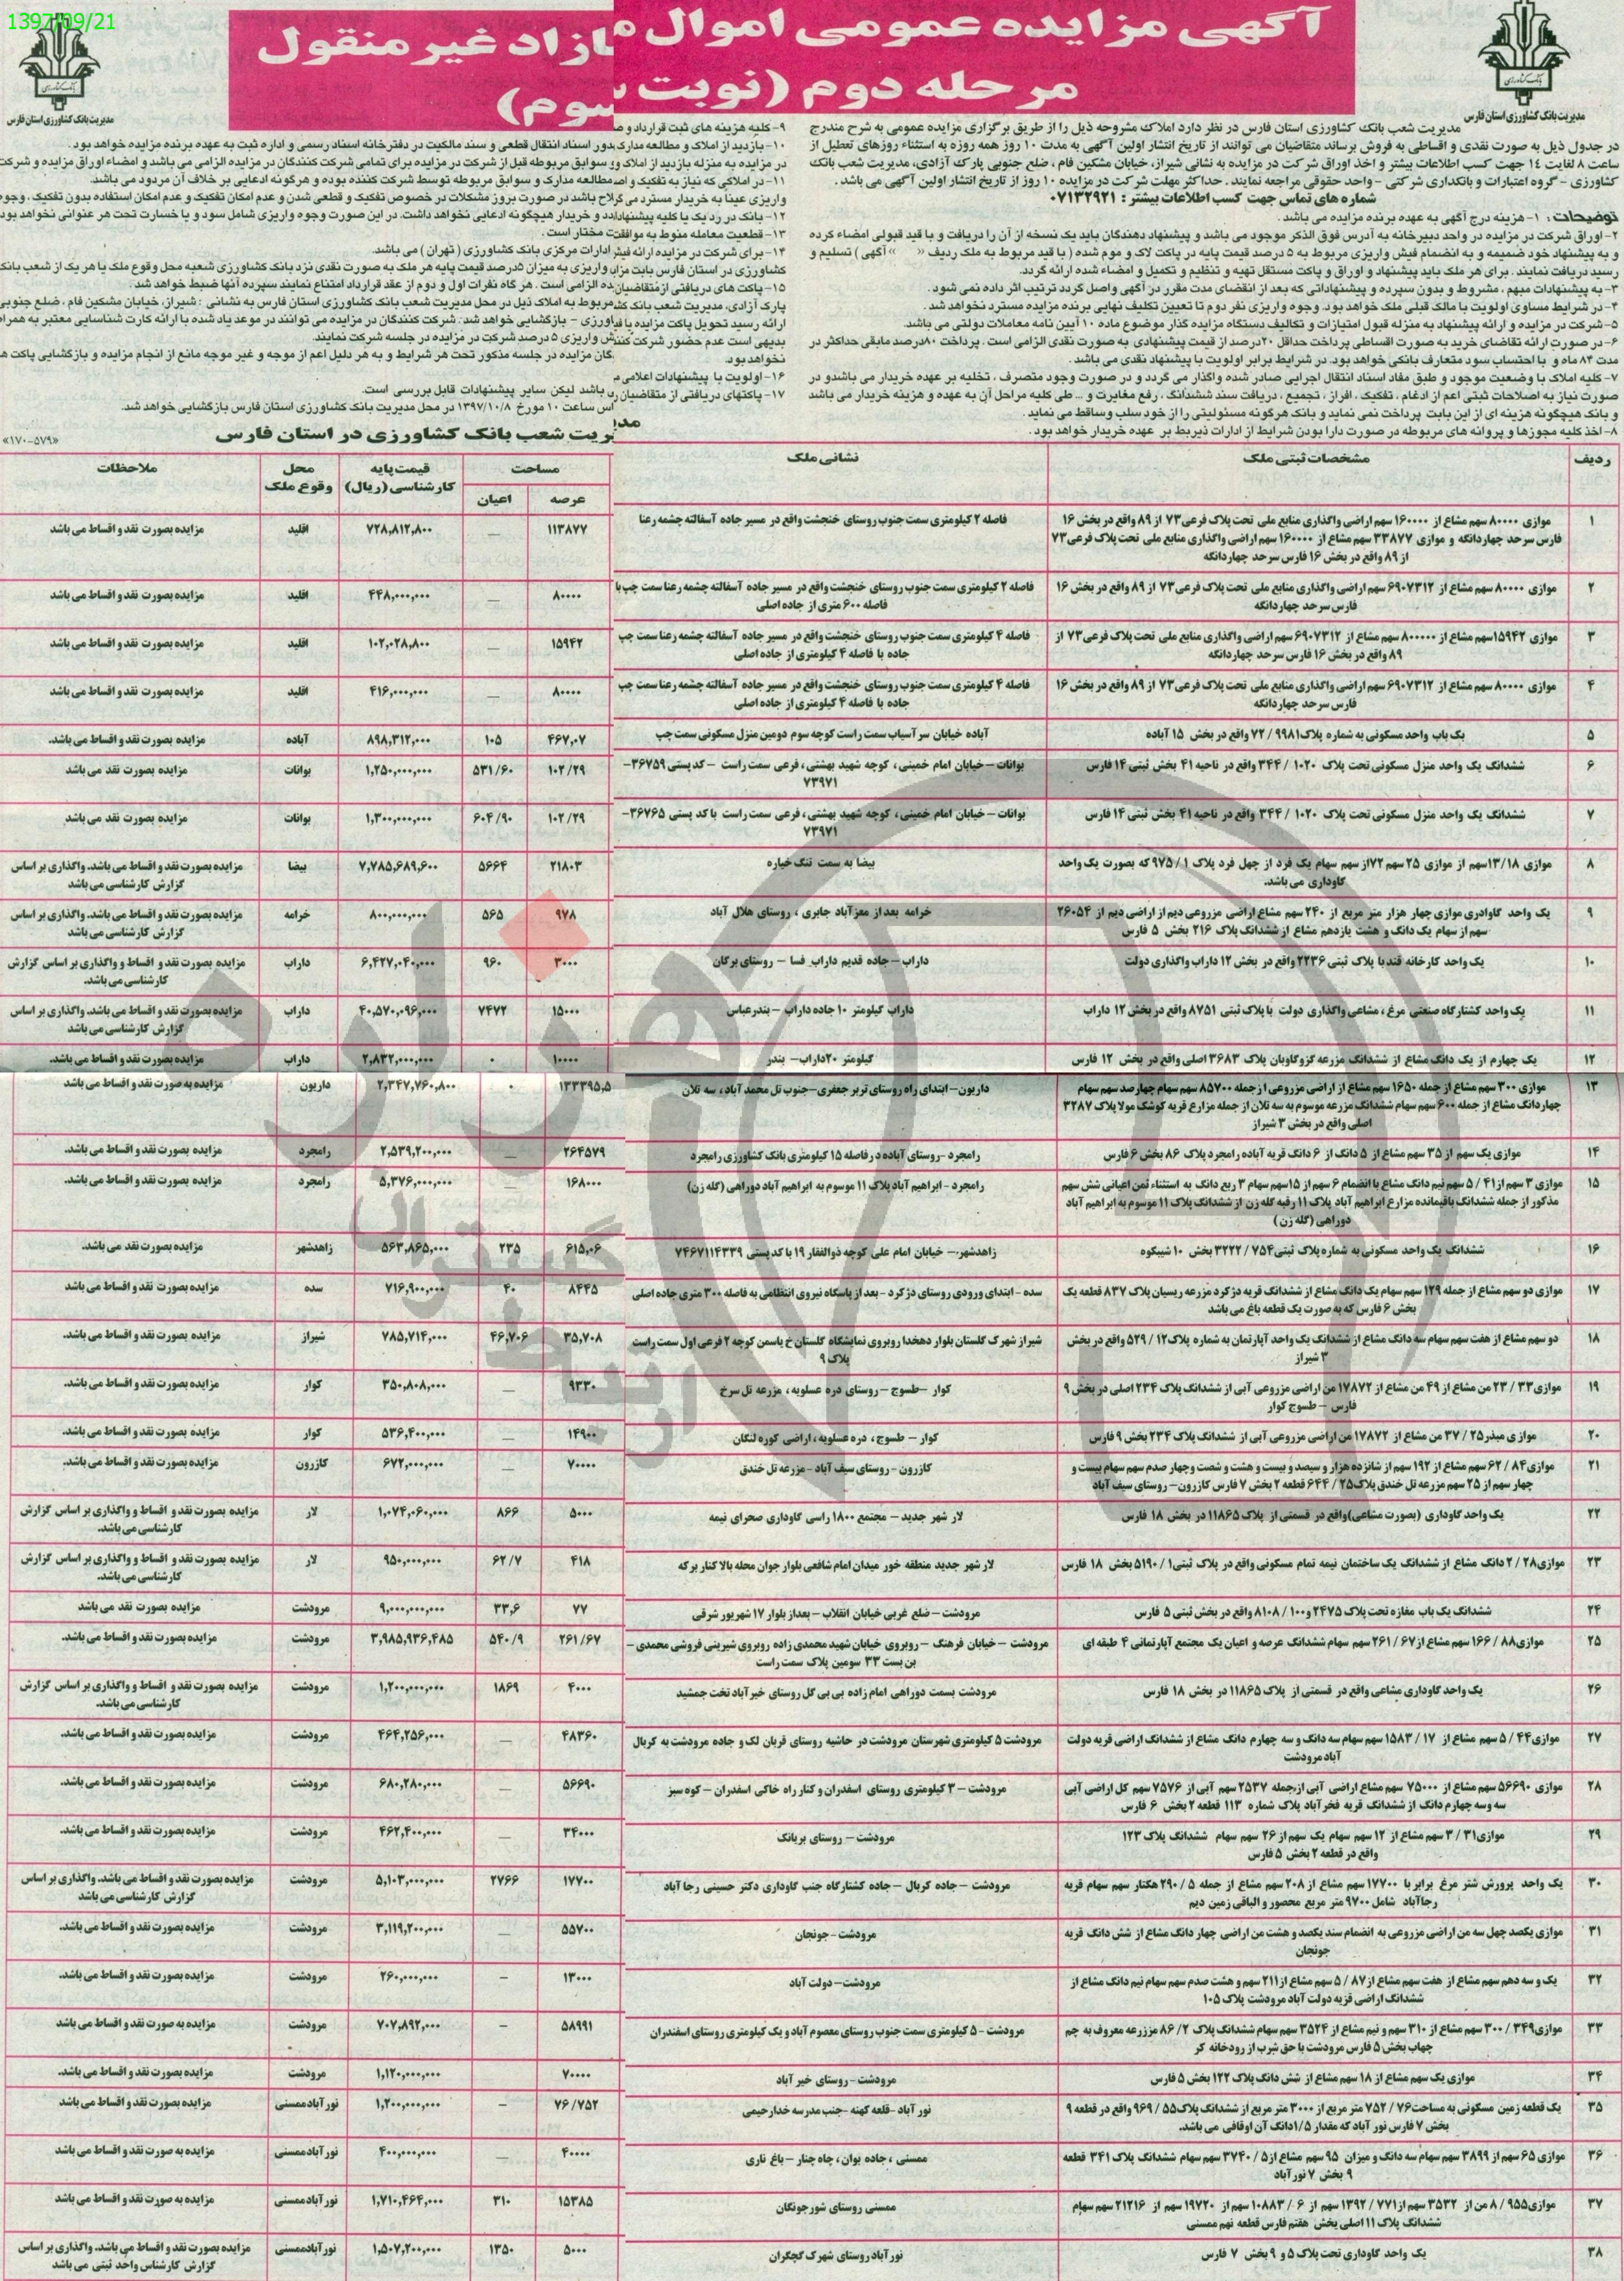 1397/09/21
آگهی مزایده عمومی اموال مازاد غیر منقول
مرحله دوم (نوبت سوم)
بانک کشاورزی
مدیریت بانک کشاورزی استان فارس
مدیریت شعب بانک کشاورزی استان فارس در نظر دارد املاک مشروحه ذیل را از طریق برگزاری مزایده عمومی به شرح مندرج
در جدول ذیل به صورت نقدی و اقساطی به فروش برساند متقاضیان می توانند از تاریخ انتشار اولین آگهی به مدت ۱۰ روز همه روزه به استثناء روزهای تعطیل از
ساعت ۸ لغایت ۱۴ جهت کسب اطلاعات بیشتر و اخذ اوراق شرکت در مزایده به نشانی شیراز، خیابان مشکین فام ، ضلع جنوبی پارک آزادی، مدیریت شعب بانک
کشاورزی - گروه اعتبارات و بانکداری شرکتی - واحد حقوقی مراجعه نمایند . حداکثر مهلت شرکت در مزایده ۱۰ روز از تاریخ انتشار اولین آگهی می باشد .
شماره های تماس جهت کسب اطلاعات بیشتر : ۰۷۱۳۲۹۲۱
توضیحات : ۱- هزینه درج آگهی به عهده برنده مزایده می باشد .
۲- اوراق شرکت در مزایده در واحد دبیرخانه به آدرس فوق الذکر موجود می باشد و پیشنهاد دهندگان باید یک نسخه از آن را دریافت و با قید قبولی امضاء کرده
و به پیشنهاد خود ضمیمه و به انضمام فیش واریزی مربوط به ۵ درصد قیمت پایه در پاکت لاک و موم شده ( با قید مربوط به ملک ردیف « » آگهی ) تسلیم و
رسید دریافت نمایند . برای هر ملک باید پیشنهاد و اوراق و پاکت مستقل تهیه و تنظیم و تکمیل و امضاء شده ارائه گردد.
۳- به پیشنهادات مبهم ، مشروط و بدون سپرده و پیشنهاداتی که بعد از انقضای مدت مقرر در آگهی واصل گردد ترتیب اثر داده نمی شود .
۴- در شرایط مساوی اولویت با مالک قبلی ملک خواهد بود. وجوه واریزی نفر دوم تا تعیین تکلیف نهایی برنده مزایده مسترد نخواهد شد .
۵- شرکت در مزایده و ارائه پیشنهاد به منزله قبول امتیازات و تکالیف دستگاه مزایده گذار موضوع ماده ۱۰ آیین نامه معاملات دولتی می باشد.
۶- در صورت ارائه تقاضای خرید به صورت اقساطی پرداخت حداقل ۲۰درصد از قیمت پیشنهادی به صورت نقدی الزامی است . پرداخت ۸۰درصد مابقی حداکثر در
مدت ۸۴ ماه و با احتساب سود متعارف بانکی خواهد بود. در شرایط برابر اولویت با پیشنهاد نقدی می باشد .
۷- کلیه املاک با وضعیت موجود و طبق مفاد اسناد انتقال اجرایی صادر شده واگذار می گردد و در صورت وجود متصرف ، تخلیه بر عهده خریدار می باشد و در
صورت نیاز به اصلاحات ثبتی اعم از ادغام ، تفکیک ، افراز ، تجمیع ، دریافت سند ششدانگ ، رفع مغایرت و ... طی کلیه مراحل آن به عهده و هزینه خریدار می باشد
و بانک هیچگونه هزینه ای از این بابت پرداخت نمی نماید و بانک هرگونه مسئولیتی را از خود سلب و ساقط می نماید .
۸- اخذ کلیه مجوزها و پروانه های مربوطه در صورت دارا بودن شرایط از ادارات ذیربط بر عهده خریدار خواهد بود .
۹- کلیه هزینه های ثبت قرارداد و صدور اسناد انتقال قطعی و سند مالکیت در دفترخانه اسناد رسمی و اداره ثبت به عهده برنده مزایده خواهد بود .
۱۰- بازدید از املاک و مطالعه مدارک
در مزایده به منزله بازدید از املاک و سوابق مربوطه قبل از شرکت در مزایده برای تمامی شرکت کنندگان در مزایده الزامی می باشد و امضاء اوراق مزایده و شرکت
۱۱- در املاکی که نیاز به تفکیک و مطالعه مدارک و سوابق مربوطه توسط شرکت کننده بوده و هرگونه ادعایی بر خلاف آن مردود می باشد.
واریزی عینا به خریدار مسترد می گردد در صورت بروز مشکلات در خصوص تفکیک و قطعی شدن و عدم امکان تفکیک و عدم امکان استفاده بدون تفکیک . وجوه
۱۲- بانک در رد یک یا کلیه پیشنهادات خریدار هیچگونه ادعایی نخواهد داشت. در این صورت وجوه واریزی شامل سود و یا خسارت تحت هر عنوانی نخواهد بود
۱۳- قطعیت معامله منوط به موافقت مختار است .
۱۴- برای شرکت در مزایده ارائه فیش ادارات مرکزی بانک کشاورزی ( تهران ) می باشد.
کشاورزی در استان فارس بابت واریزی به میزان ۵درصد قیمت پایه هر ملک به صورت نقدی نزد بانک کشاورزی شعبه محل وقوع ملک یا هر یک از شعب بانک
۱۵- پاکت های دریافتی از متقاضیان الزامی است . هر گاه نفرات اول و دوم از عقد قرارداد امتناع نمایند سپرده آنها ضبط خواهد شد.
پارک آزادی، مدیریت شعب بانک مربوط به املاک ذیل در محل مدیریت شعب بانک کشاورزی استان فارس به نشانی : شیراز، خیابان مشکین فام ، ضلع جنوبی
ارائه رسید تحویل پاکت مزایده کشاورزی - بازگشایی خواهد شد. شرکت کنندگان در مزایده می توانند در موعد یاد شده با ارائه کارت شناسایی معتبر به همراه
بدیهی است عدم حضور شرکت واریزی ۵ درصد شرکت در مزایده در جلسه شرکت نمایند.
نخواهد بود. مزایده در جلسه مذکور تحت هر شرایط و به هر دلیل اعم از موجه و غیر موجه مانع از انجام مزایده و بازگشایی پاکت ها
۱۶- اولویت با پیشنهادات اعلامی می باشد لیکن سایر پیشنهادات قابل بررسی است.
۱۷- پاکتهای دریافتی از متقاضیان رأس ساعت ۱۰ مورخ ۱۳۹۷/۱۰/۸ در محل مدیریت بانک کشاورزی استان فارس بازگشایی خواهد شد.
مدیریت شعب بانک کشاورزی در استان فارس
«۱۷۰-۵۷۹»
ردیف مشخصات ثبتی ملک نشانی ملک مساحت عرصه اعیان قیمت پایه کارشناسی (ریال) محل وقوع ملک ملاحظات
۱ موازی ۸۰۰۰۰ سهم مشاع از ۱۶۰۰۰۰ سهم اراضی واگذاری منابع ملی تحت پلاک فرعی ۷۳ از ۸۹ واقع در بخش ۱۶ فارس سرحد چهاردانگه و موازی ۳۳۸۷۷ سهم مشاع از ۱۶۰۰۰۰ سهم اراضی واگذاری منابع ملی تحت پلاک فرعی ۷۳ از ۸۹ واقع در بخش ۱۶ فارس سرحد چهاردانگه فاصله ۲ کیلومتری سمت جنوب روستای خنجشت واقع در مسیر جاده آسفالته چشمه رعنا ۱۱۳۸۷۷ — ۷۲۸,۸۱۲,۸۰۰ اقلید مزایده بصورت نقد و اقساط می باشد
۲ موازی ۸۰۰۰۰ سهم مشاع از ۶۹۰۷۳۱۲ سهم اراضی واگذاری منابع ملی تحت پلاک فرعی ۷۳ از ۸۹ واقع در بخش ۱۶ فارس سرحد چهاردانگه فاصله ۲ کیلومتری سمت جنوب روستای خنجشت واقع در مسیر جاده آسفالته چشمه رعنا سمت چپ با فاصله ۶۰۰ متری از جاده اصلی ۸۰۰۰۰ — ۴۴۸,۰۰۰,۰۰۰ اقلید مزایده بصورت نقد و اقساط می باشد
۳ موازی ۱۵۹۴۲سهم مشاع از ۸۰۰۰۰۰ سهم مشاع از ۶۹۰۷۳۱۲ سهم اراضی واگذاری منابع ملی تحت پلاک فرعی ۷۳ از ۸۹ واقع در بخش ۱۶ فارس سرحد چهاردانگه فاصله ۴ کیلومتری سمت جنوب روستای خنجشت واقع در مسیر جاده آسفالته چشمه رعنا سمت چپ جاده با فاصله ۴ کیلومتری از جاده اصلی ۱۵۹۴۲ — ۱۰۲,۰۲۸,۸۰۰ اقلید مزایده بصورت نقد و اقساط می باشد
۴ موازی ۸۰۰۰۰ سهم مشاع از ۶۹۰۷۳۱۲ سهم اراضی واگذاری منابع ملی تحت پلاک فرعی ۷۳ از ۸۹ واقع در بخش ۱۶ فارس سرحد چهاردانگه فاصله ۴ کیلومتری سمت جنوب روستای خنجشت واقع در مسیر جاده آسفالته چشمه رعنا سمت چپ جاده با فاصله ۴ کیلومتری از جاده اصلی ۸۰۰۰۰ — ۴۱۶,۰۰۰,۰۰۰ اقلید مزایده بصورت نقد و اقساط می باشد
۵ یک باب واحد مسکونی به شماره پلاک ۷۲/۹۹۸۱ واقع در بخش ۱۵ آباده آباده خیابان سرآسیاب سمت راست کوچه سوم دومین منزل مسکونی سمت چپ ۴۶۷,۰۷ ۱۰۵ ۸۹۸,۳۱۲,۰۰۰ آباده مزایده بصورت نقد و اقساط می باشد.
۶ ششدانگ یک واحد منزل مسکونی تحت پلاک ۳۴۴/۱۰۲۰ واقع در ناحیه ۴۱ بخش ثبتی ۱۴ فارس بوانات - خیابان امام خمینی، کوچه شهید بهشتی، فرعی سمت راست - کد پستی ۳۶۷۵۹-۷۳۹۷۱ ۱۰۲/۲۹ ۵۳۱/۶۰ ۱,۲۵۰,۰۰۰,۰۰۰ بوانات مزایده بصورت نقد می باشد
۷ ششدانگ یک واحد منزل مسکونی تحت پلاک ۳۴۴/۱۰۲۰ واقع در ناحیه ۴۱ بخش ثبتی ۱۴ فارس بوانات - خیابان امام خمینی، کوچه شهید بهشتی، فرعی سمت راست با کد پستی ۳۶۷۶۵-۷۳۹۷۱ ۱۰۲/۲۹ ۶۰۴/۹۰ ۱,۳۰۰,۰۰۰,۰۰۰ بوانات مزایده بصورت نقد می باشد
۸ موازی ۱۳/۱۸سهم از موازی ۲۵ سهم ۷۲از سهم سهام یک فرد از چهل فرد پلاک ۹۷۵/۱ که بصورت یک واحد گاوداری می باشد. بیضا به سمت تنگ خیاره ۲۱۸۰۳ ۵۶۶۴ ۷,۷۸۵,۶۸۹,۶۰۰ بیضا مزایده بصورت نقد و اقساط می باشد. واگذاری بر اساس گزارش کارشناسی می باشد
۹ یک واحد گاوداری موازی چهار هزار متر مربع از ۲۴۰ سهم مشاع اراضی مزروعی دیم از اراضی دیم از ۲۶۰۵۴ سهم از سهام یک دانگ و هشت یازدهم مشاع از ششدانگ پلاک ۲۱۶ بخش ۵ فارس خرامه بعد از معزآباد جابری ، روستای هلال آباد ۹۷۸ ۵۶۵ ۸۰۰,۰۰۰,۰۰۰ خرامه مزایده بصورت نقد و اقساط می باشد. واگذاری بر اساس گزارش کارشناسی می باشد
۱۰ یک واحد کارخانه قند با پلاک ثبتی ۲۲۳۶ واقع در بخش ۱۲ داراب واگذاری دولت داراب - جاده قدیم داراب فسا - روستای برگان ۳۰۰۰ ۹۶۰ ۶,۴۲۷,۰۴۰,۰۰۰ داراب مزایده بصورت نقد و اقساط و واگذاری بر اساس گزارش کارشناسی می باشد.
۱۱ یک واحد کشتارگاه صنعتی مرغ ، مشاعی واگذاری دولت با پلاک ثبتی ۸۷۵۱ واقع در بخش ۱۲ داراب داراب کیلومتر ۱۰ جاده داراب - بندرعباس ۱۵۰۰۰ ۷۴۷۲ ۴۰,۵۷۰,۰۹۶,۰۰۰ داراب مزایده بصورت نقد و اقساط می باشد. واگذاری بر اساس گزارش کارشناسی می باشد
۱۲ یک چهارم از یک دانگ مشاع از ششدانگ مزرعه گزوگاوبان پلاک ۳۶۸۳ اصلی واقع در بخش ۱۲ فارس کیلومتر ۲۰داراب- بندر ۱۰۰۰۰ ۰ ۲,۸۳۲,۰۰۰,۰۰۰ داراب مزایده بصورت نقد و اقساط می باشد.
۱۳ موازی ۳۰۰ سهم مشاع از جمله ۱۶۵۰ سهم مشاع از اراضی مزروعی از جمله ۸۵۷۰۰ سهم سهام چهارصد سهم سهام چهاردانگ مشاع از جمله ۶۰۰ سهم سهام ششدانگ مزرعه موسوم به سه تلان از جمله مزارع قریه کوشک مولا پلاک ۳۲۸۷ اصلی واقع در بخش ۳ شیراز داریون - ابتدای راه روستای تربر جعفری - جنوب تل محمد آباد ، سه تلان ۱۳۳۳۹۵,۵ ۰ ۲,۳۴۷,۷۶۰,۸۰۰ داریون مزایده به صورت نقد و اقساط می باشد
۱۴ موازی یک سهم از ۳۵ سهم مشاع از ۵ دانگ از ۶ دانگ قریه آباده رامجرد پلاک ۸۶ بخش ۶ فارس رامجرد - روستای آباده در فاصله ۱۵ کیلومتری بانک کشاورزی رامجرد ۲۶۴۵۷۹ — ۲,۵۳۹,۲۰۰,۰۰۰ رامجرد مزایده بصورت نقد و اقساط می باشد.
۱۵ موازی ۳ سهم از ۵/۴۱ سهم نیم دانگ مشاع با انضمام ۶ سهم از ۱۵ سهم سهام ۳ ربع دانگ به استثناء ثمن اعیانی شش سهم مذکور از جمله ششدانگ باقیمانده مزارع ابراهیم آباد پلاک ۱۱ رقبه گله زن از ششدانگ پلاک ۱۱ موسوم به ابراهیم آباد دوراهی (گله زن) رامجرد - ابراهیم آباد پلاک ۱۱ موسوم به ابراهیم آباد دوراهی (گله زن) ۱۶۸۰۰۰ — ۵,۳۷۶,۰۰۰,۰۰۰ رامجرد مزایده بصورت نقد و اقساط می باشد.
۱۶ ششدانگ یک واحد مسکونی به شماره پلاک ثبتی ۳۲۲۲/۷۵۴ بخش ۱۰ شیبکوه زاهدشهر - خیابان امام علی کوچه ذوالفقار ۱۹ با کد پستی ۷۴۶۷۱۱۴۳۳۹ ۶۱۵,۰۶ ۲۳۵ ۵۶۳,۸۶۵,۰۰۰ زاهدشهر مزایده بصورت نقد می باشد.
۱۷ موازی دو سهم مشاع از جمله ۱۲۹ سهم سهام یک دانگ مشاع از ششدانگ قریه دژکرد مزرعه ریسیان پلاک ۸۳۷ قطعه یک بخش ۶ فارس که به صورت یک قطعه باغ می باشد سده - ابتدای ورودی روستای دژکرد - بعد از پاسگاه نیروی انتظامی به فاصله ۳۰۰ متری جاده اصلی ۸۴۴۵ ۴۰ ۷۱۶,۹۰۰,۰۰۰ سده مزایده بصورت نقد و اقساط می باشد
۱۸ دو سهم مشاع از هفت سهم سهام سه دانگ مشاع از ششدانگ یک واحد آپارتمان به شماره پلاک ۵۲۹/۱۲ واقع در بخش ۳ شیراز شیراز شهرک گلستان بلوار دهخدا روبروی نمایشگاه گلستان خ یاسمن کوچه ۲ فرعی اول سمت راست پلاک ۹ ۳۵,۷۰۸ ۴۶,۷۰۶ ۷۸۵,۷۱۴,۰۰۰ شیراز مزایده بصورت نقد و اقساط می باشد
۱۹ موازی ۲۳/۳۳ من مشاع از ۴۹ من مشاع از ۱۷۸۷۲ من اراضی مزروعی آبی از ششدانگ پلاک ۲۳۴ اصلی در بخش ۹ فارس - طسوج کوار کوار - طسوج - روستای دره عسلویه ، مزرعه تل سرخ ۹۳۳۰ — ۳۵۰,۸۰۸,۰۰۰ کوار مزایده بصورت نقد و اقساط می باشد.
۲۰ موازی میذر ۳۷/۲۵ من مشاع از ۱۷۸۷۲ من اراضی مزروعی آبی از ششدانگ پلاک ۲۳۴ بخش ۹ فارس کوار - طسوج ، دره عسلویه ، اراضی کوره لنگان ۱۴۹۰۰ — ۵۳۶,۴۰۰,۰۰۰ کوار مزایده بصورت نقد و اقساط می باشد.
۲۱ موازی ۶۲/۸۴ سهم مشاع از ۱۹۲ سهم از شانزده هزار و سیصد و بیست و هشت و شصت و چهار صدم سهم سهام بیست و چهار سهم از ۲۵ سهم مزرعه تل خندق پلاک ۶۴۴/۲۵ قطعه ۲ بخش ۷ فارس کازرون - روستای سیف آباد کازرون - روستای سیف آباد - مزرعه تل خندق ۷۰۰۰۰ — ۶۷۲,۰۰۰,۰۰۰ کازرون مزایده بصورت نقد و اقساط می باشد.
۲۲ یک واحد گاوداری (بصورت مشاعی) واقع در قسمتی از پلاک ۱۱۸۶۵ در بخش ۱۸ فارس لار شهر جدید - مجتمع ۱۸۰۰ راسی گاوداری صحرای نیمه ۵۰۰۰ ۸۶۶ ۱,۰۷۴,۰۶۰,۰۰۰ لار مزایده بصورت نقد و اقساط و واگذاری بر اساس گزارش کارشناسی می باشد.
۲۳ موازی ۲/۲۸ دانگ مشاع از ششدانگ یک ساختمان نیمه تمام مسکونی واقع در پلاک ثبتی ۵۱۹۰/۱ بخش ۱۸ فارس لار شهر جدید منطقه خور میدان امام شافعی بلوار جوان محله بالا کنار برکه ۴۱۸ ۶۲/۷ ۹۵۰,۰۰۰,۰۰۰ لار مزایده بصورت نقد و اقساط و واگذاری بر اساس گزارش کارشناسی می باشد.
۲۴ ششدانگ یک باب مغازه تحت پلاک ۲۴۷۵ و ۸۱۰۸/۱۰۰ واقع در بخش ثبتی ۵ فارس مرودشت - ضلع غربی خیابان انقلاب - بعد از بلوار ۱۷ شهریور شرقی ۷۷ ۳۳,۶ ۹,۰۰۰,۰۰۰,۰۰۰ مرودشت مزایده بصورت نقد می باشد
۲۵ موازی ۱۶۶/۸۸ سهم مشاع از ۲۶۱/۶۷ سهم سهام ششدانگ عرصه و اعیان یک مجتمع آپارتمانی ۴ طبقه ای مرودشت - خیابان فرهنگ - روبروی خیابان شهید محمدی زاده روبروی شیرینی فروشی محمدی - بن بست ۳۳ سومین پلاک سمت راست ۲۶۱/۶۷ ۵۴۰/۹ ۳,۹۸۵,۹۳۶,۴۸۵ مرودشت مزایده بصورت نقد و اقساط می باشد.
۲۶ یک واحد گاوداری مشاعی واقع در قسمتی از پلاک ۱۱۸۶۵ در بخش ۱۸ فارس مرودشت بسمت دوراهی امام زاده بی بی گل روستای خیرآباد تخت جمشید ۴۰۰۰ ۱۸۶۹ ۱,۲۰۰,۰۰۰,۰۰۰ مرودشت مزایده بصورت نقد و اقساط و واگذاری بر اساس گزارش کارشناسی می باشد.
۲۷ موازی ۵/۴۴ سهم مشاع از ۱۵۸۳/۱۷ سهم سهام سه دانگ و سه چهارم دانگ مشاع از ششدانگ اراضی قریه دولت آباد مرودشت مرودشت ۵ کیلومتری شهرستان مرودشت در حاشیه روستای قربان لک و جاده مرودشت به کربال ۴۸۳۶۰ — ۴۶۴,۲۵۶,۰۰۰ مرودشت مزایده بصورت نقد و اقساط می باشد.
۲۸ موازی ۵۶۶۹۰ سهم مشاع از ۷۵۰۰۰ سهم مشاع اراضی آبی از جمله ۲۵۳۷ سهم آبی از ۷۵۷۶ سهم کل اراضی آبی سه وسه چهارم دانگ از ششدانگ قریه فخرآباد پلاک شماره ۱۱۳ قطعه ۲ بخش ۶ فارس مرودشت - ۳ کیلومتری روستای اسفدران و کنار راه خاکی اسفدران - کوه سبز ۵۶۶۹۰ — ۶۸۰,۲۸۰,۰۰۰ مرودشت مزایده بصورت نقد و اقساط می باشد.
۲۹ موازی ۳/۳۱ سهم مشاع از ۱۲ سهم سهام یک سهم از ۲۶ سهم سهام ششدانگ پلاک ۱۲۳ واقع در قطعه ۲ بخش ۵ فارس مرودشت - روستای بریانک ۳۴۰۰۰ — ۴۶۲,۴۰۰,۰۰۰ مرودشت مزایده بصورت نقد و اقساط می باشد.
۳۰ یک واحد پرورش شتر مرغ برابر با ۱۷۷۰۰ سهم مشاع از ۲۰۸ سهم مشاع از جمله ۲۹۰/۵ هکتار سهم سهام قریه رجاآباد شامل ۹۷۰۰ متر مربع محصور و الباقی زمین دیم مرودشت - جاده کربال - جاده کشتارگاه جنب گاوداری دکتر حسینی رجا آباد ۱۷۷۰۰ ۲۷۶۶ ۵,۱۰۳,۰۰۰,۰۰۰ مرودشت مزایده بصورت نقد و اقساط می باشد. واگذاری بر اساس گزارش کارشناسی می باشد
۳۱ موازی یکصد چهل سه من اراضی مزروعی به انضمام سند یکصد و هشت من اراضی چهار دانگ مشاع از شش دانگ قریه جونجان مرودشت - جونجان ۵۵۷۰۰ — ۳,۱۱۹,۲۰۰,۰۰۰ مرودشت مزایده بصورت نقد و اقساط می باشد.
۳۲ یک و سه دهم سهم مشاع از هفت سهم مشاع از ۵/۸۷ سهم مشاع از ۲۱۱ سهم و هشت صدم سهم سهام نیم دانگ مشاع از ششدانگ اراضی قریه دولت آباد مرودشت پلاک ۱۰۵ مرودشت - دولت آباد ۱۳۰۰۰ - ۲۶۰,۰۰۰,۰۰۰ مرودشت مزایده بصورت نقد و اقساط می باشد.
۳۳ موازی ۳۰۰/۳۴۹ سهم مشاع از ۳۱۰ سهم و نیم مشاع از ۳۵۲۴ سهم سهام ششدانگ پلاک ۸۶/۲ مزرعه معروف به چم چهاب بخش ۵ فارس مرودشت با حق شرب از رودخانه کر مرودشت - ۵ کیلومتری سمت جنوب روستای معصوم آباد و یک کیلومتری روستای اسفندران ۵۸۹۹۱ - ۷۰۷,۸۹۲,۰۰۰ مرودشت مزایده به صورت نقد و اقساط می باشد
۳۴ موازی یک سهم مشاع از ۱۸ سهم مشاع از شش دانگ پلاک ۱۲۲ بخش ۵ فارس مرودشت - روستای خیر آباد ۷۰۰۰۰ ۱,۱۲۰,۰۰۰,۰۰۰ مرودشت مزایده بصورت نقد و اقساط می باشد.
۳۵ یک قطعه زمین مسکونی به مساحت ۷۵۲/۷۶ متر مربع از ۳۰۰۰ متر مربع از ششدانگ پلاک ۹۶۹/۵۵ واقع در قطعه ۹ بخش ۷ فارس نورآباد که مقدار ۱/۵دانگ آن اوقافی می باشد. نورآباد - قلعه کهنه - جنب مدرسه خدارحیمی ۷۶/۷۵۲ - ۱,۲۰۰,۰۰۰,۰۰۰ نورآباد ممسنی مزایده بصورت نقد و اقساط می باشد.
۳۶ موازی ۶۵ سهم از ۳۸۹۹ سهم سهام سه دانگ و میزان ۹۵ سهم مشاع از ۳۷۴۰/۵ سهم سهام ششدانگ پلاک ۳۴۱ قطعه ۹ بخش ۷ نورآباد ممسنی ، جاده بوان ، چاه چنار - باغ ناری ۴۰۰۰۰ — ۴۰۰,۰۰۰,۰۰۰ نورآباد ممسنی مزایده به صورت نقد و اقساط می باشد
۳۷ موازی ۸/۹۵۵ من از ۳۵۳۲ سهم از ۱۳۹۲/۷۷۱ سهم از ۱۰۸۸۳/۶ سهم از ۱۹۷۲۰ سهم از ۲۱۲۱۶ سهم سهام ششدانگ پلاک ۱۱ اصلی بخش هفتم فارس قطعه نهم ممسنی ممسنی روستای شورجونگان ۱۵۳۸۵ ۳۱۰ ۱,۷۱۰,۴۶۴,۰۰۰ نورآباد ممسنی مزایده به صورت نقد و اقساط می باشد
۳۸ یک واحد گاوداری تحت پلاک ۵ و ۹ بخش ۷ فارس نورآباد روستای شهرک گچگران ۵۰۰۰ ۱۳۵۰ ۱,۵۰۷,۲۰۰,۰۰۰ نورآباد ممسنی مزایده بصورت نقد و اقساط می باشد. واگذاری بر اساس گزارش کارشناس واحد ثبتی می باشد